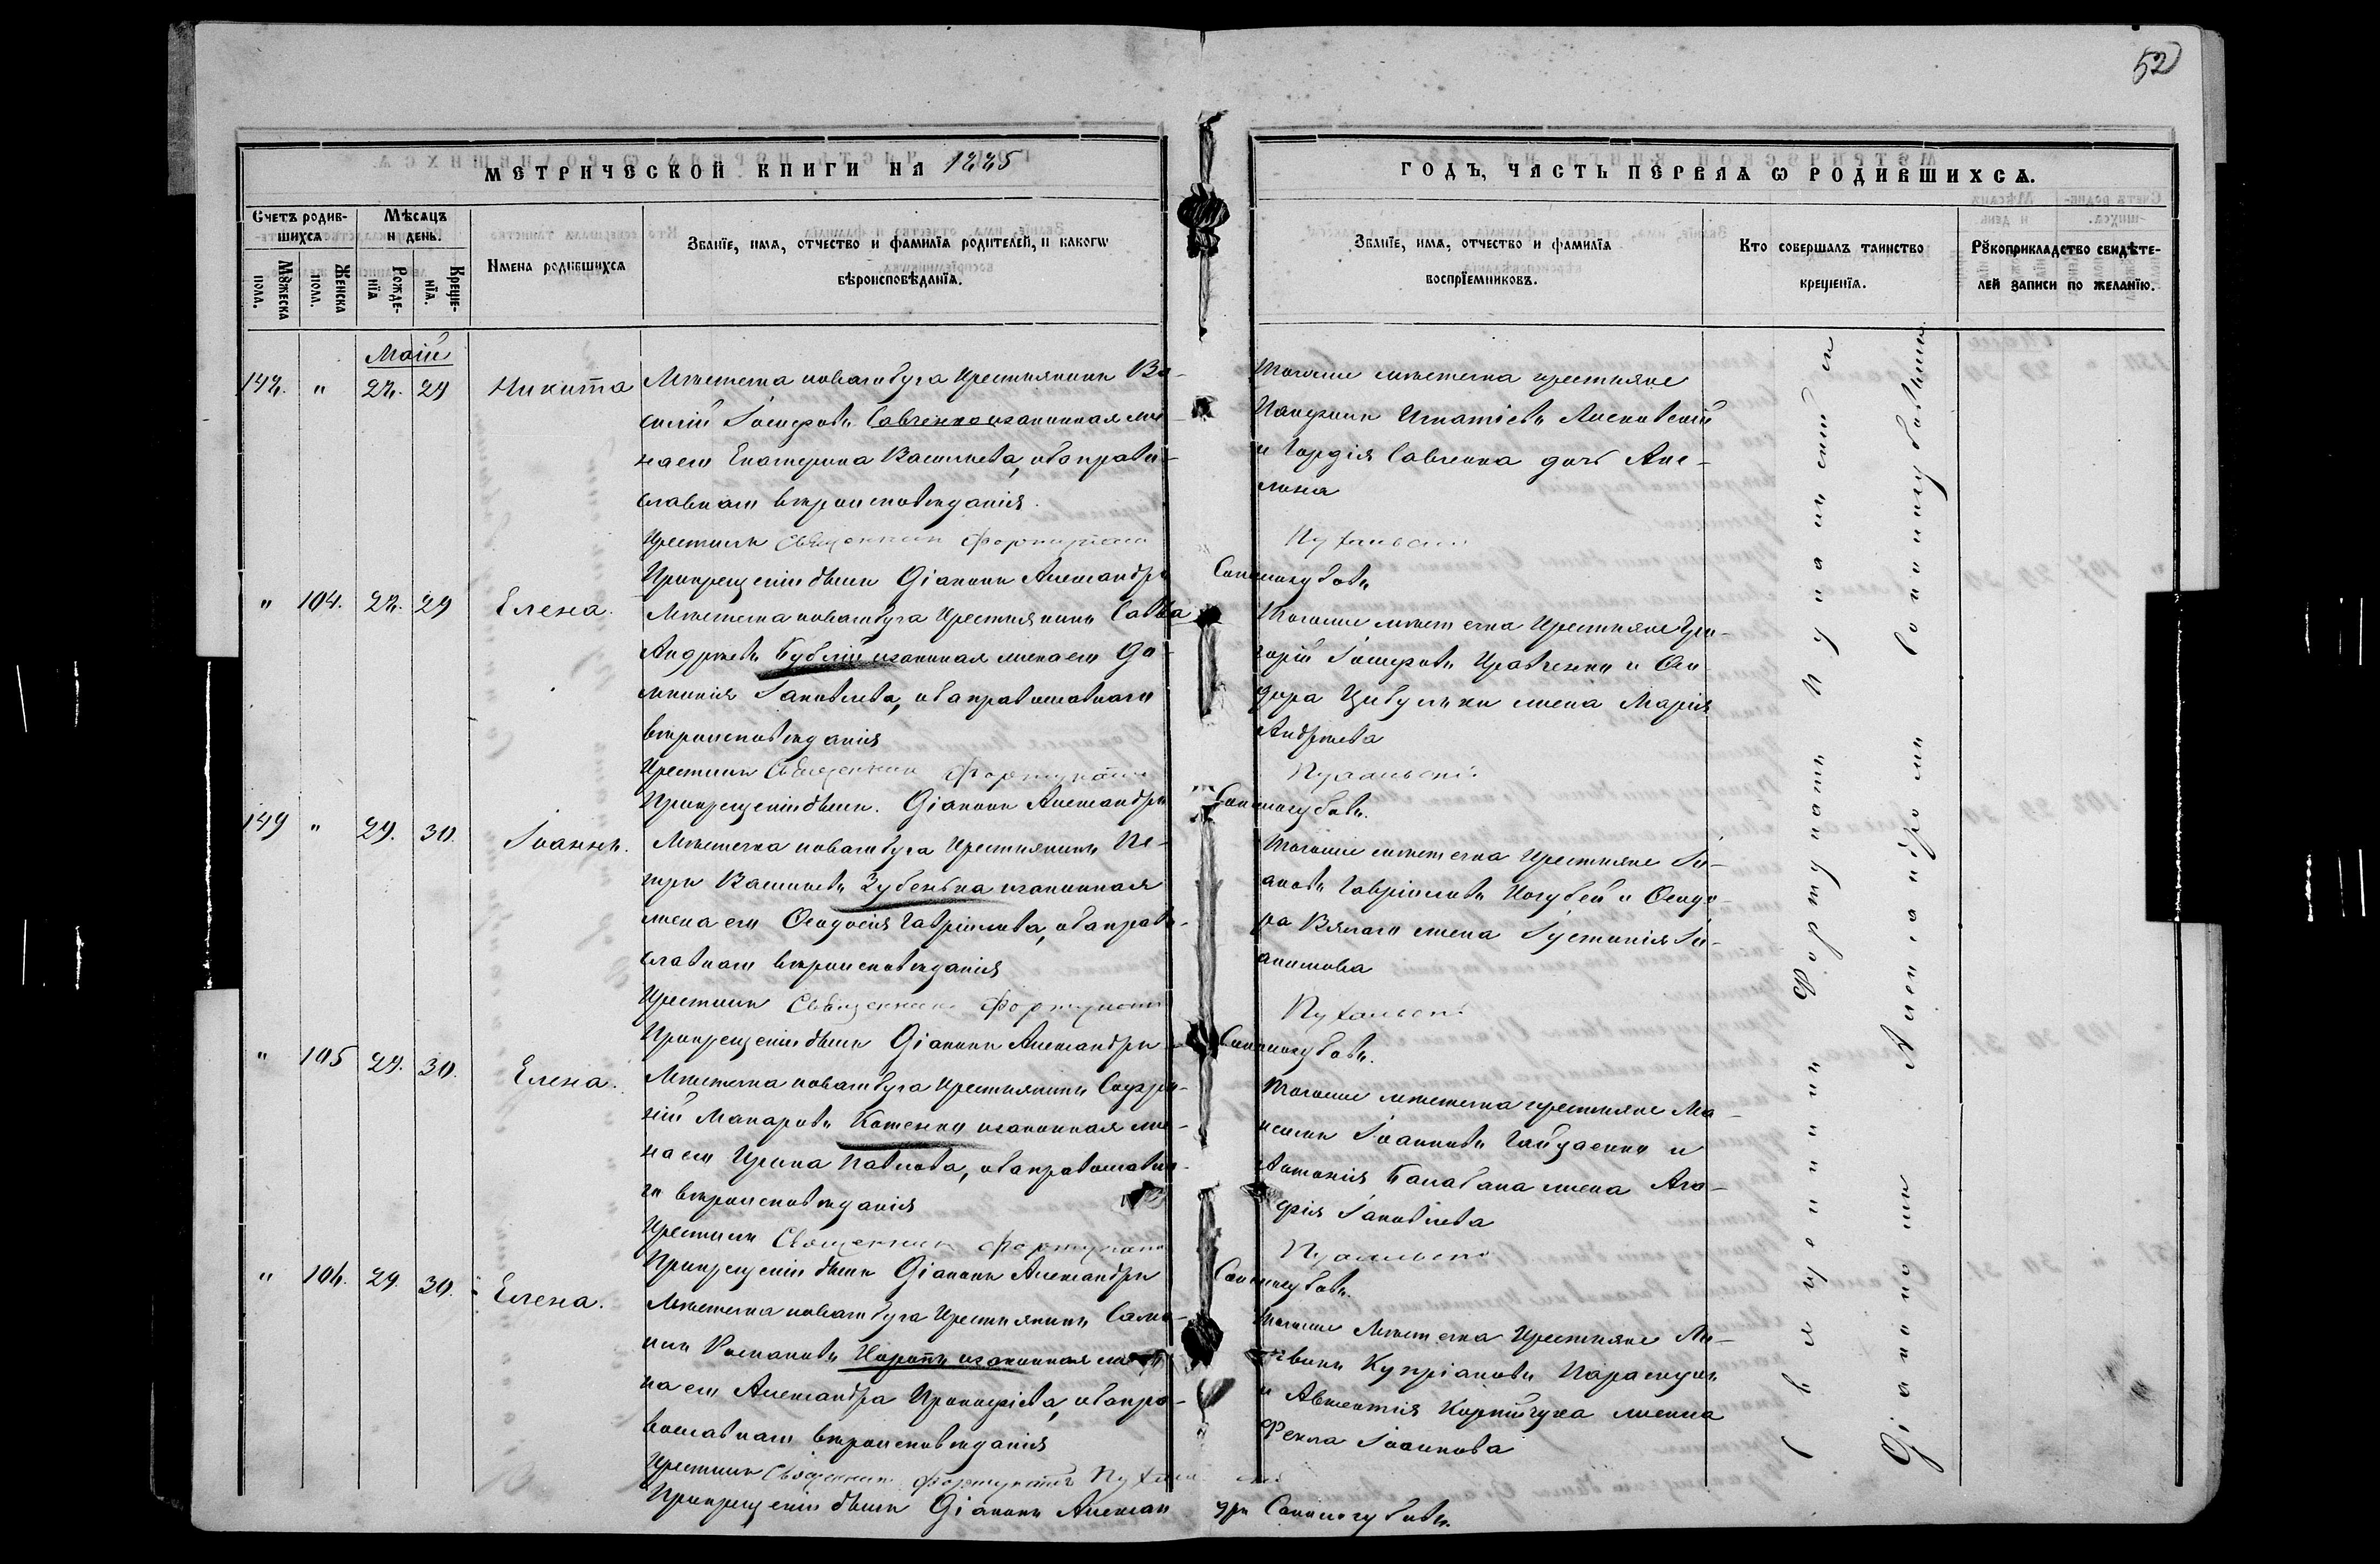 52
МЕТРИЧЕСКОЙ КНИГИ НА 1885
ГОДЪ, ЧАСТЬ ПЕРВАЯ Ѡ РОДИВШИХСЯ.
Счетъ родив-
шихся
Мꙋжеска
пола.
Женска
пола.
Мѣсяцъ
и день.
Рожде-
нїя
Креще-
нїя.
Имена родившихся
Званїе, имя, отчество и фамилїя родителей, и какогѡ
вѣроисповѣданїя.
Званїе, имя, отчество и фамилїя
воспрїемниковъ.
Кто совершалъ таинство
крещенїя.
Рꙋкоприкладство свидѣте-
лей записи по желанїю.
Май
148. " 28. 29 Никита
Мѣстечка новаго буга крестьянинъ Ва-
силій Іосифовъ Савченко и законная же-
на его Екатерина Васильева, оба право-
славнаго вѣроисповѣданія.
Крестилъ Священникъ Фортунатъ
При крещеніи былъ Діаконъ Александръ
Тогоже мѣстечка крестьяне
Игнатіевъ Лисковскій
и Гордія Савченка дочь Аке-
лина
Пухальскій
Солоногубовъ
" 104. 28. 29 Елена.
Мѣстечка новаго буга Крестьянинъ Савва
Андреевъ Бублій и законная жена его До-
мникія Іаковлева, оба православнаго
вѣроисповѣданія
Крестилъ Священникъ Фортунатъ
При крещеніи былъ. Діаконъ Александръ
Тогоже мѣстечка Крестьяне Гри-
горій Іосифовъ Кравченко и Ѳео-
дора Цибульки жена Марія
Андреева
Пухальскій
Солоногубовъ.
149 " 29. 30. Іоаннъ.
Мѣстечка новаго буга Крестьянинъ Пе-
тръ Васильевъ Зубенька и законная
жена его Ѳеодосія Гавріилова, оба право-
славнаго вѣроисповѣданія
Крестилъ Священникъ Фортунатъ
При крещеніи былъ Діаконъ Александръ
Тогоже мѣстечка Крестьяне Іа-
ковъ Гавріиловъ Когубей и Ѳеодо-
ра Вялаго жена Іустинія Іо-
акимова
Пухальскій
Солоногубовъ.
" 105 29. 30. Елена.
Мѣстечка новаго буга Крестьянинъ Софро-
ній Макаровъ Котенко и законная же-
на его Ирина Павлова, оба православна-
го вѣроисповѣданія
Крестилъ Священникъ Фортунатъ
При крещеніи былъ Діаконъ Александръ
Тогоже мѣстечка крестьяне Ма-
ксимъ Іоанновъ Гайдаенко и
Антонія Балабана жена Ага-
фія Іаковлева
Пухальскій
Солоногубовъ.
" 106. 29. 30. Елена.
Мѣстечка новаго буга Крестьянинъ Само-
илъ Романовъ Коропъ и законная же-
на его Александра Прокофіева, оба пра-
вославнаго вѣроисповѣданія
Крестилъ Священникъ Фортунатъ Пухальскій
При крещеніи былъ Діаконъ Александръ Солоногубовъ.
Тогоже Мѣстечка Крестьяне Ло-
гвинъ Купріановъ
и Авксентія жена
Ѳекла Іоаннова
Священникъ Фортунатъ Пухальскій и
Діаконъ Александръ Солоногубовъ